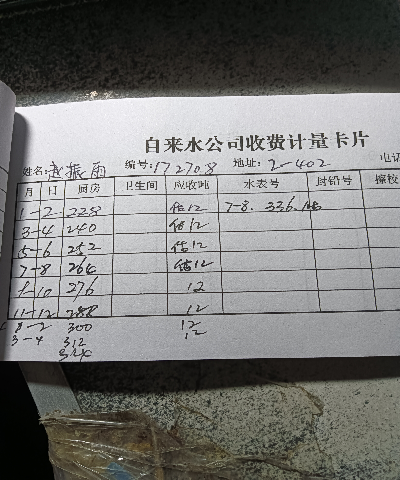 自来水公司收费计量卡片
姓名: 赵振雨 编号: 172708 地址: 2-402 电话
月 日 厨房 卫生间 应收吨 水表号 封铅号
1-2 228 估12 7-8. 336.
3-4 240 估12
5-6 252 估12
7-8 264 估12
9-10 276 12
11-12 288 12
300 12
3-4 312 12
324